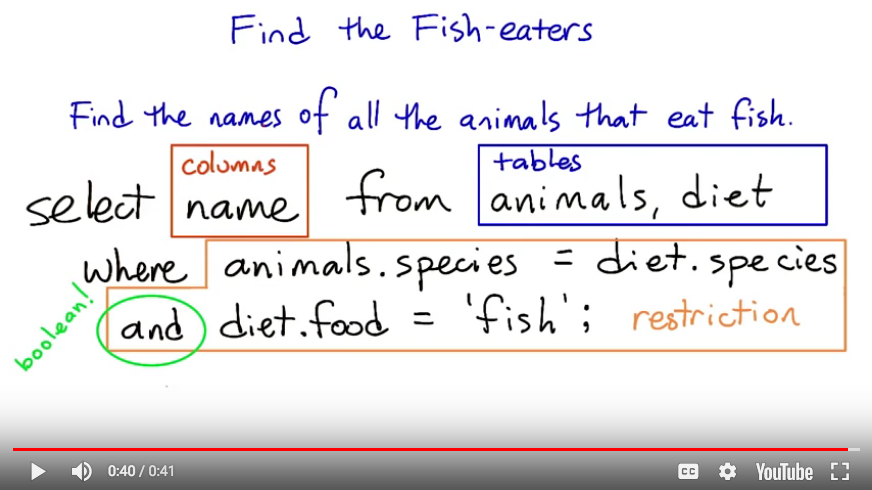 Find the Fish-eaters
Find the names of all the animals that eat fish.
columns
tables
select name from animals, diet
where animals.species = diet.species
boolean!
and diet.food = 'fish'; restriction
0:40 / 0:41
CC
YouTube